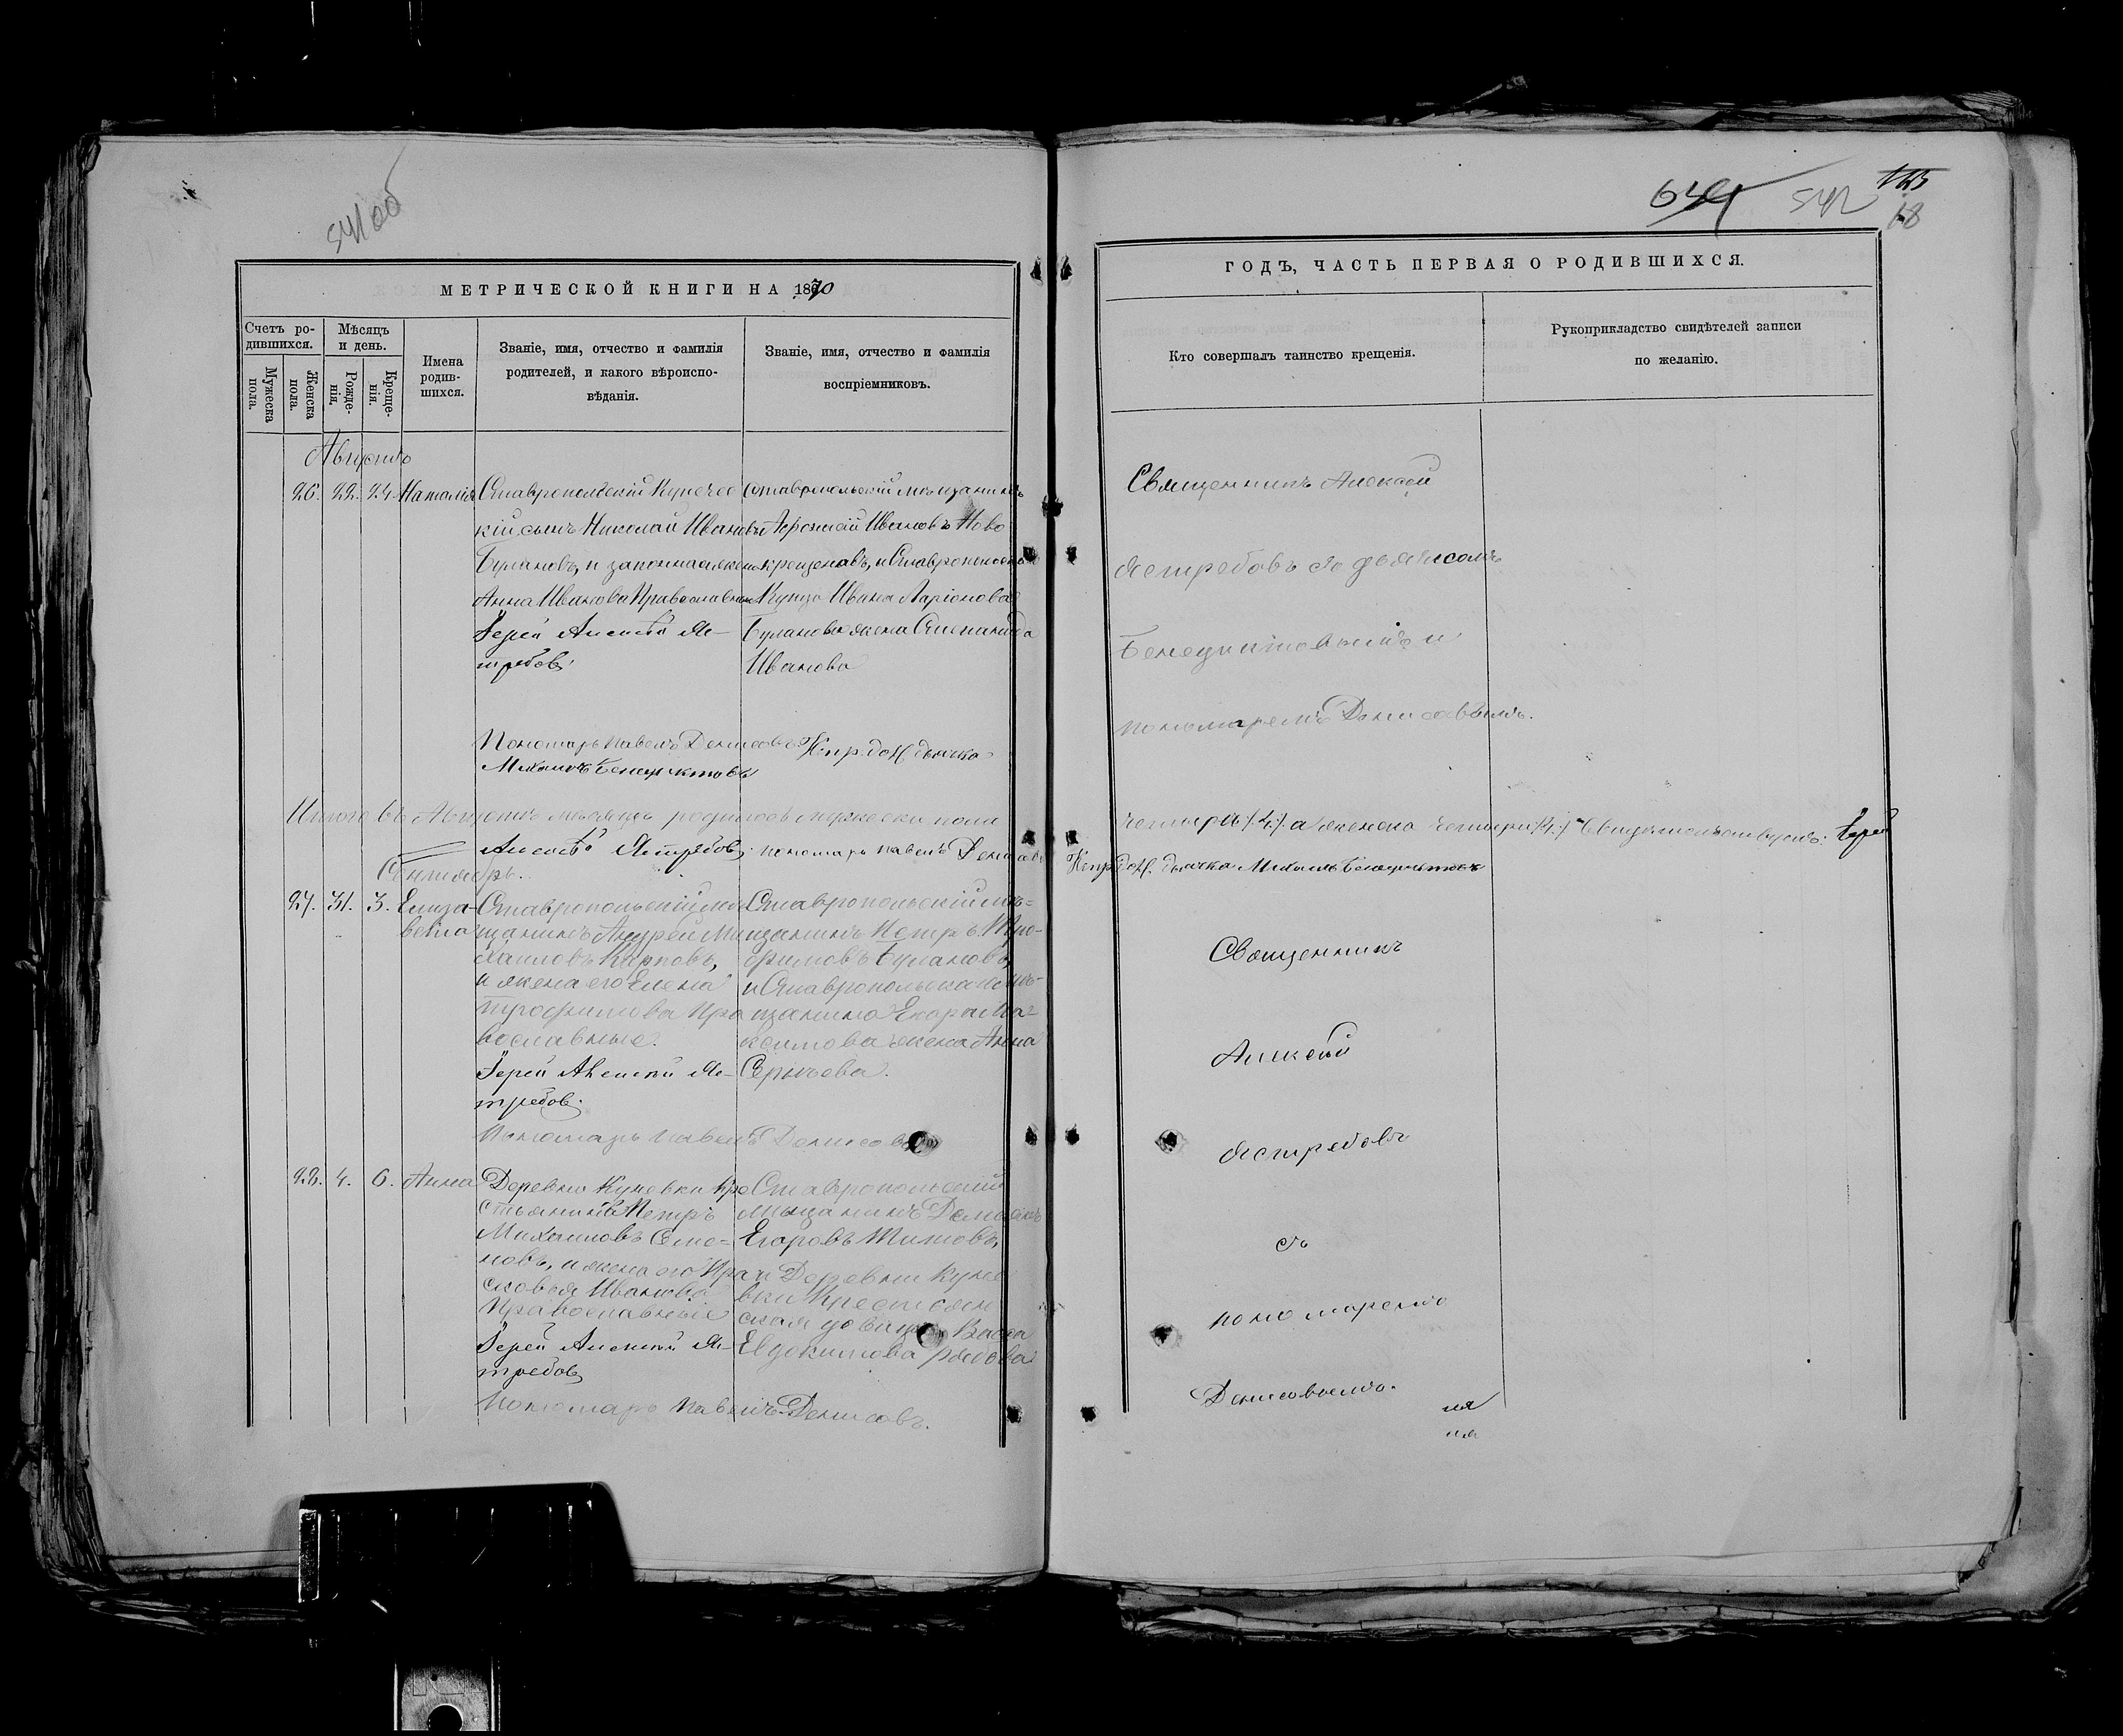 541 об
МЕТРИЧЕСКОЙ КНИГИ НА 1870
Счетъ ро-
дившихся.
Мужеска
пола.
Женска
пола.
Мѣсяцъ
и день.
Рожде-
нія.
Креще-
нія.
Имена
родив-
шихся.
Званіе, имя, отчество и фамилія
родителей, и какого вѣроиспо-
вѣданія.
Званіе, имя, отчество и фамилія
воспріемниковъ.
Августъ
26. 22. 24. Наталія
Ставропольскій Купечес
кій сынъ Николай Ивановъ
Булановъ, и законная жена
Анна Иванова Православные
Іерей Алексѣй Яс-
требовъ
Ставропольскій мѣщанинъ
Иванъ Ново
крещеновъ, и Ставропольскаго
Купца Ивана Ларіонова
Буланова жена Степанида
Иванова
Пономарь Павелъ Денисовъ
Испр. дол. дьячка
Михаилъ Бенедиктовъ
Итого въ Августѣ мѣсяцѣ родилось мужеска пола
Алексѣй Ястребовъ. пономарь Павелъ Денисовъ
Сентябрь.
27. 31. 3. Елиза-
вета
Ставропольскій мѣ
щанинъ Андрей Ми
хайловъ Карповъ,
и жена его Елена
Трофимова Пра
вославные.
Іерей Алексѣй Яс-
требовъ.
Ставропольскій мѣ-
щанинъ Петръ Тро-
фимовъ Булановъ,
и Ставропольскаго мѣ-
щанина Егора Ма-
ксимова жена Анна
Сергѣева.
Пономарь Павелъ Денисовъ
28. 4. 6. Анна
Деревни Кунеевки Кре
стьянинъ Петръ
Михаиловъ Семе-
новъ, и жена его Пра
сковья Иванова
Православные
Іерей Алексѣй Яс-
требовъ
Ставропольскій
мѣщанинъ Демьянъ
Егоровъ Титовъ,
и Деревни Кунее
вки Крестьян
ская вдова Васса
Евдокимова
Пономарь Павелъ Денисовъ.
644 542 18
ГОДЪ, ЧАСТЬ ПЕРВАЯ О РОДИВШИХСЯ.
Кто совершалъ таинство крещенія.
Рукоприкладство свидѣтелей записи
по желанію.
Священникъ Алексѣй
Ястребовъ съ дьячкомъ
Бенедиктовымъ и
пономаремъ Денисовымъ.
четыре /:4:/ а женска четыре /:4:/ Іерей
Испр. дол. дьячка Михаилъ Бенедиктовъ
Священникъ
Алексѣй
Ястребовъ
съ
пономаремъ
Денисовымъ.